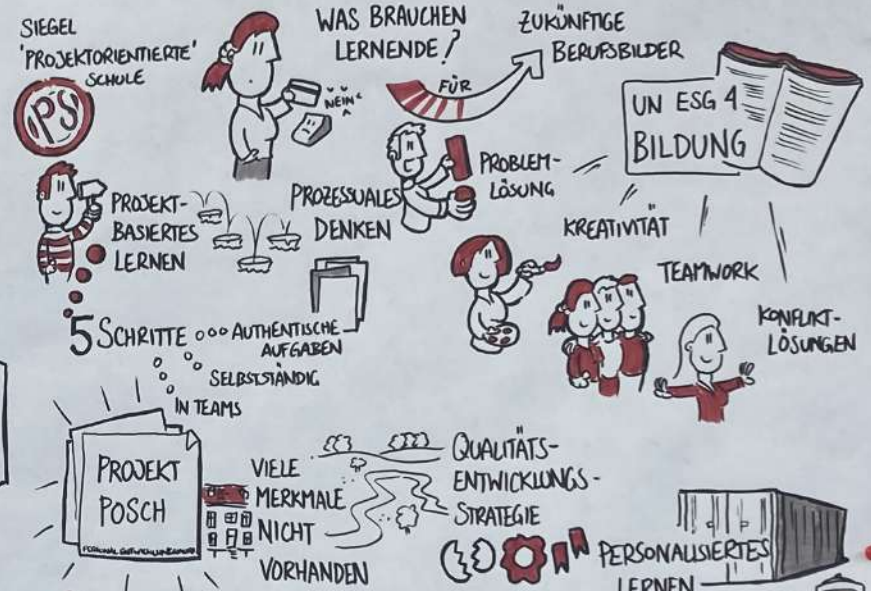 SIEGEL
'PROJEKTORIENTIERTE'
SCHULE
PS
WAS BRAUCHEN
LERNENDE?
NEIN
FÜR
ZUKÜNFTIGE
BERUFSBILDER
UN ESG 4
BILDUNG
PROJEKT-
BASIERTES
LERNEN
PROZESSUALES
DENKEN
PROBLEM-
LÖSUNG
KREATIVITÄT
TEAMWORK
KONFLIKT-
LÖSUNGEN
5 SCHRITTE
AUTHENTISCHE
AUFGABEN
SELBSTSTÄNDIG
IN TEAMS
PROJEKT
POSCH
VIELE
MERKMALE
NICHT
VORHANDEN
QUALITÄTS-
ENTWICKLUNGS-
STRATEGIE
PERSONALISIERTES
LERNEN